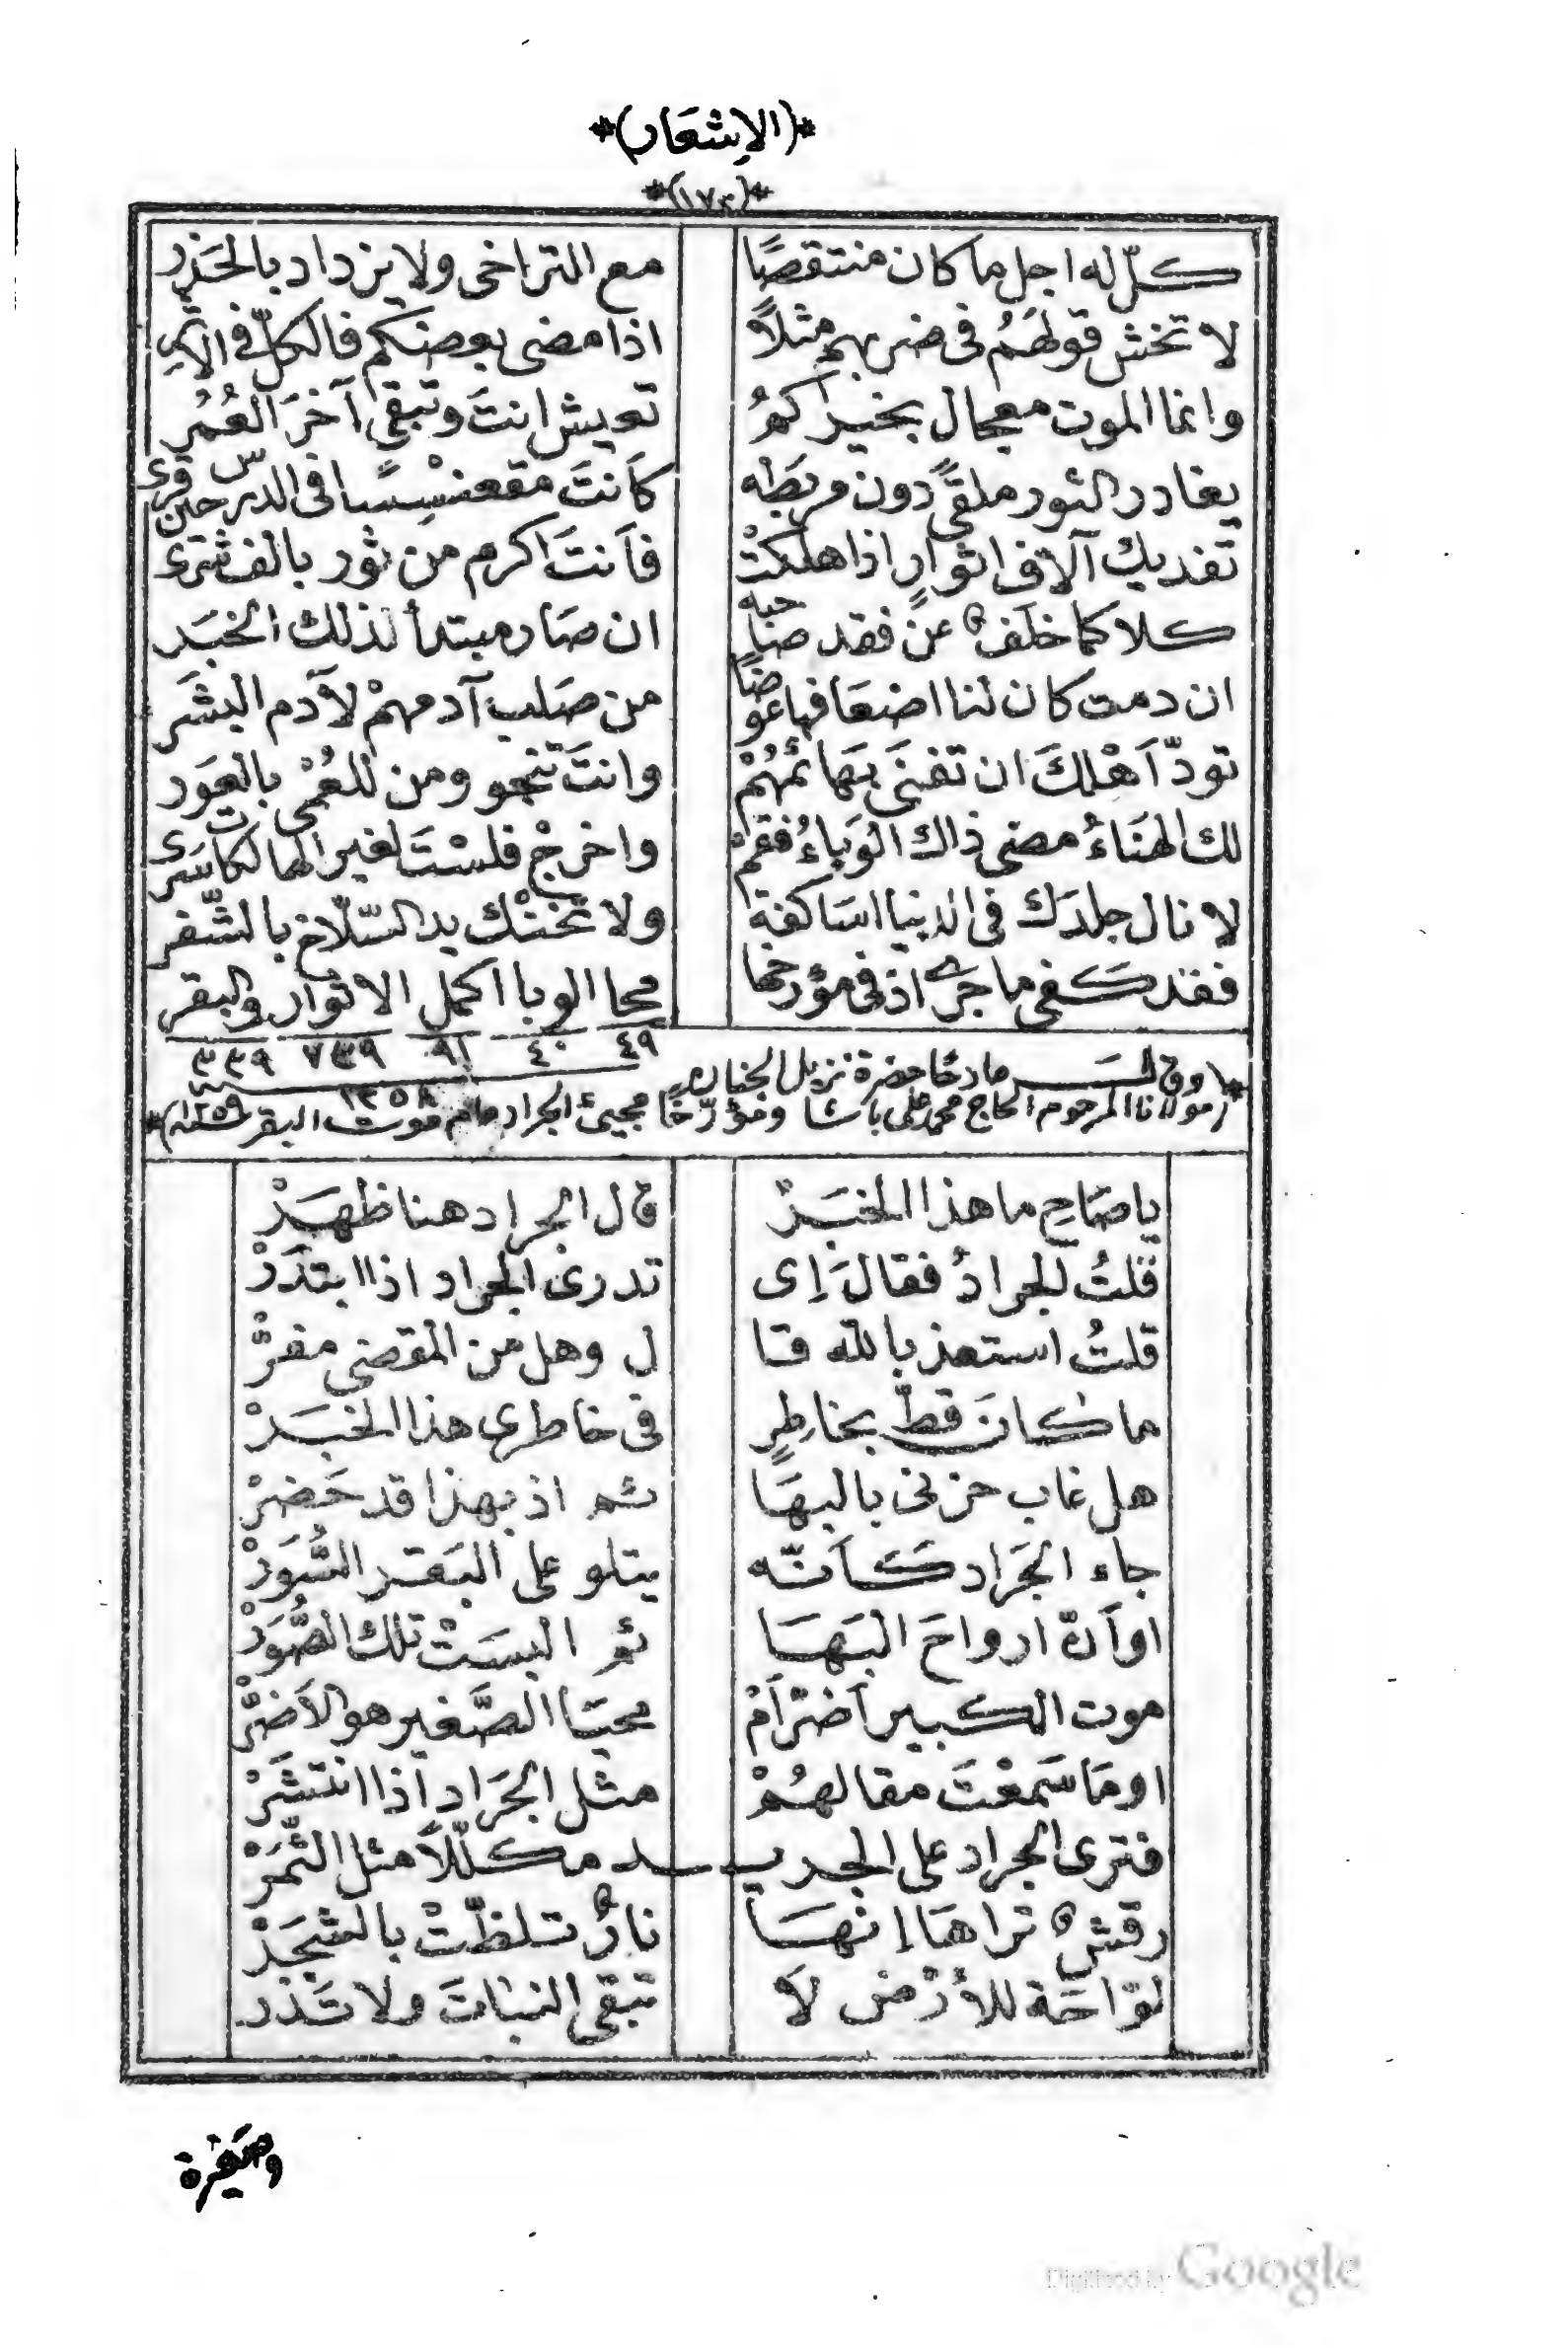 *(الاِشعَار)*
*(١٧٣)*
كلّ له اجل ما كان منتقصًا مع التراخى ولا يزداد بالحَذر
لا تخش قولهَمُ فى ضربهم مثلاً اذا مضى بعضكم فالكلّ فى الاثر
وانما الموت معجال بخيراكمُ تعيش انتَ وتبقى آخرَ العُمُر
يغادر الثور ملقًى دون مربَطه كَانتَ مقعنسِسًا فى الدرس حين قرى
تفديك آلاف اثوارٍ اذا هلكتْ فَانتَ اكرم من ثور بالف شرى
كلا كما خلَفٌ عن فقد صاحبه ان صار مبتدأ لذلك الخبَر
ان دمت كان لنا اضعَافها عوضًا من صَلب آدمهمْ لآدم البشَر
تودّ اَهْلكَ ان تفنىَ بهَائمُهُمْ وانتَ تنجو ومن للعُمْى بالعِوَر
لك الهنَاءُ مضى ذاك الوَباءُ فقمْ واخرجْ فلسْتَ لغير الهالكات سَرى
لا نال جلدَك فى الدنيا اسَاكفة ولا تخنك يد السّلّاخ بالشّفر
فقد كَفى ما جرَى اذ فى مؤرخها محا الوبا اكمل الاثوار والبقر
٤٩ ٤٠ ٩١ ٧٣٩ ٣٣٩
١٢٥٨
*(وقال مادحًا حضرة نزيل الجنان
مولانا المرحوم الحاج محمد على باشا ومؤرّخًا مجيئ الجراد عام موت البقر سنة ١٢٥٩)*
يا صَاحِ ما هذا الخبَرْ قال الجراد هنا ظهَرْ
قلتُ الجرادُ فقالَ اِى تدرى الجراد اذا ابتدَرْ
قلتُ استعذ بالله قا ل وهل من المقضى مفرّْ
ما كانَ قطّ بخاطِرٍ فى خاطرى هذا الخبَرْ
هل غاب حزنى بالبهَا ئم اذ بهذا قد حَضَرْ
جاء الجَراد كَاَنّه يتلو على البَقر السُّوَرْ
او اَنّ ارواحَ البَهَا ئم البسَتْ تلك الصُّوَرْ
موت الكبير اَضرّ اَمْ محيَا الصَّغير هو الاَضرّْ
اومَا سَمعْتَ مقالهمْ مثل الجَراد اذا انتشَرْ
فترى الجراد على الجريـ ـد مكلّلاً مثل الثّمَرْ
رقشٌ تراهَا انهَا نارٌ تلظّتْ بالشجَرْ
لوّاحَة للأرْض لاَ تبقى النباتَ ولا تَذر
وصَغيرة
Digitized by Google